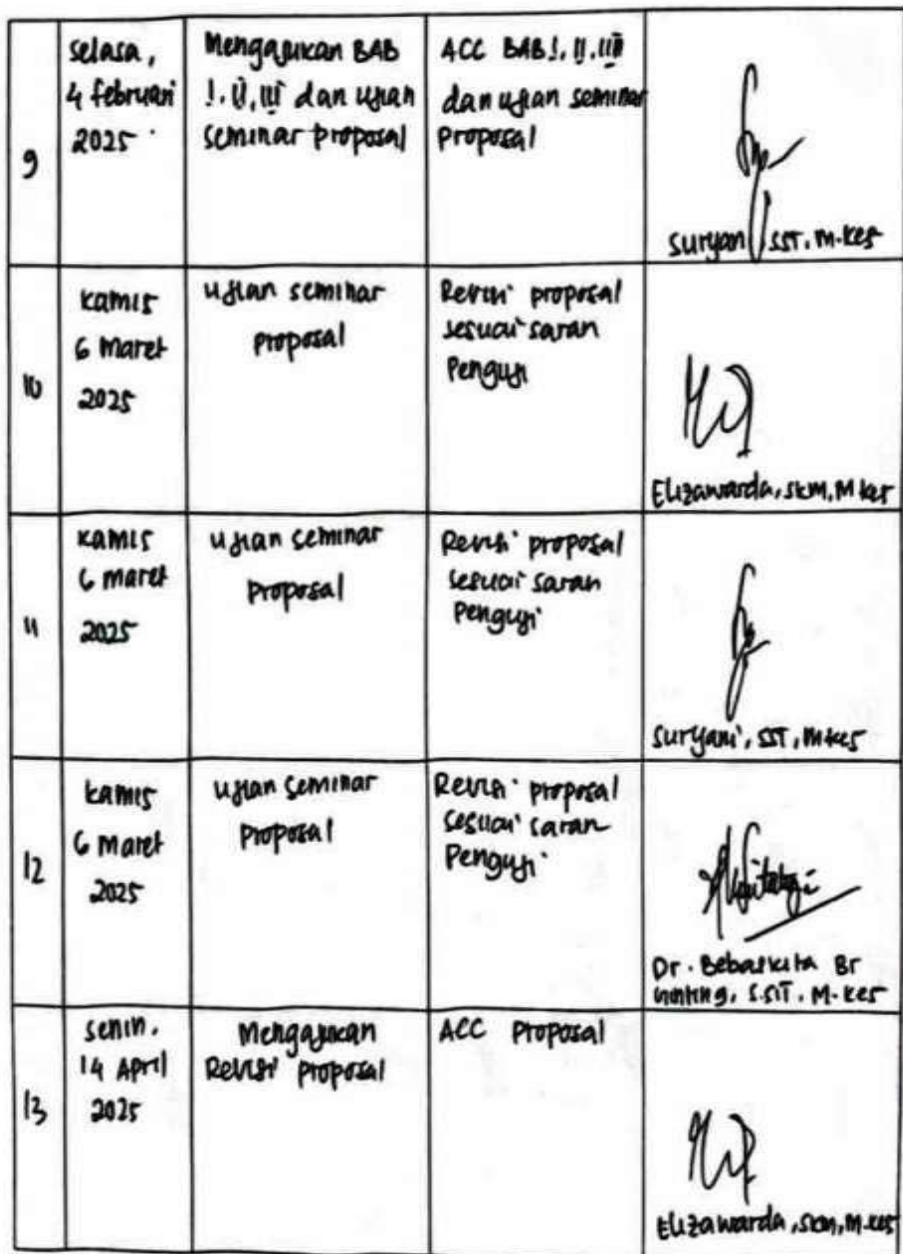 9
selasa,
4 februari
2025
Mengajukan BAB
I, II, III dan ujian
seminar proposal
ACC BAB I, II, III
dan ujian seminar
proposal
Suryani SST, M.Kes
10
kamis
6 maret
2025
ujian seminar
proposal
Revisi proposal
sesuai saran
Penguji
Elizawarda, SKM, M Kes
11
kamis
6 maret
2025
ujian seminar
proposal
Revisi proposal
sesuai saran
Penguji
Suryani, SST, M.Kes
12
kamis
6 Maret
2025
ujian seminar
proposal
Revisi proposal
sesuai saran
Penguji
Dr. Bebaskita Br
Ginting, S.SiT, M.Kes
13
senin,
14 April
2025
mengajukan
Revisi proposal
ACC Proposal
Elizawarda, SKM, M.Kes